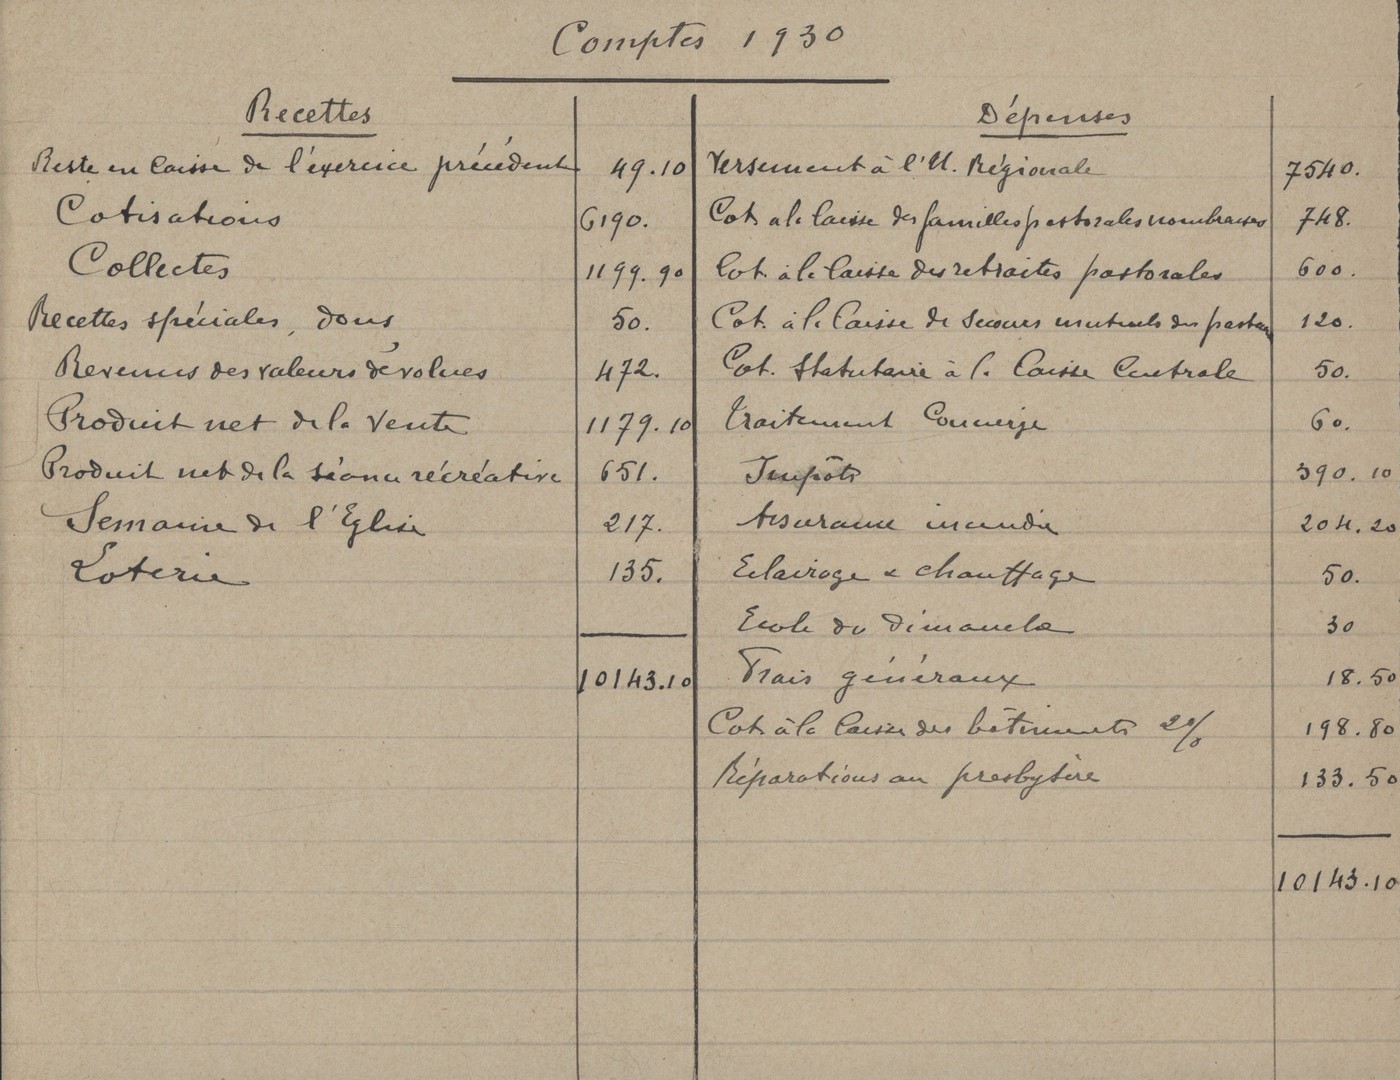 Comptes 1930
Recettes
Reste en Caisse de l'exercice précédent 49.10
Cotisations 6190.
Collectes 1199.90
Recettes spéciales, dons 50.
Revenus des valeurs dévolues 472.
Produit net de la Vente 1179.10
Produit net de la séance récréative 651.
Semaine de l'Eglise 217.
Loterie 135.
10143.10
Dépenses
Versement à l'U. Régionale 7540.
Cot. a la Caisse des familles pastorales nombreuses 748.
Cot. à la Caisse des retraites pastorales 600.
Cot. à la Caisse de Secours mutuels des pasteurs 120.
Cot. Statutaire à la Caisse Centrale 50.
Traitement Concierge 60.
Impôts 390.10
Assurance incendie 204.20
Eclairage & chauffage 50.
Ecole du Dimanche 30
Frais généraux 18.50
Cot. à la Caisse des bâtiments 2% 198.80
Réparations au presbytère 133.50
10143.10